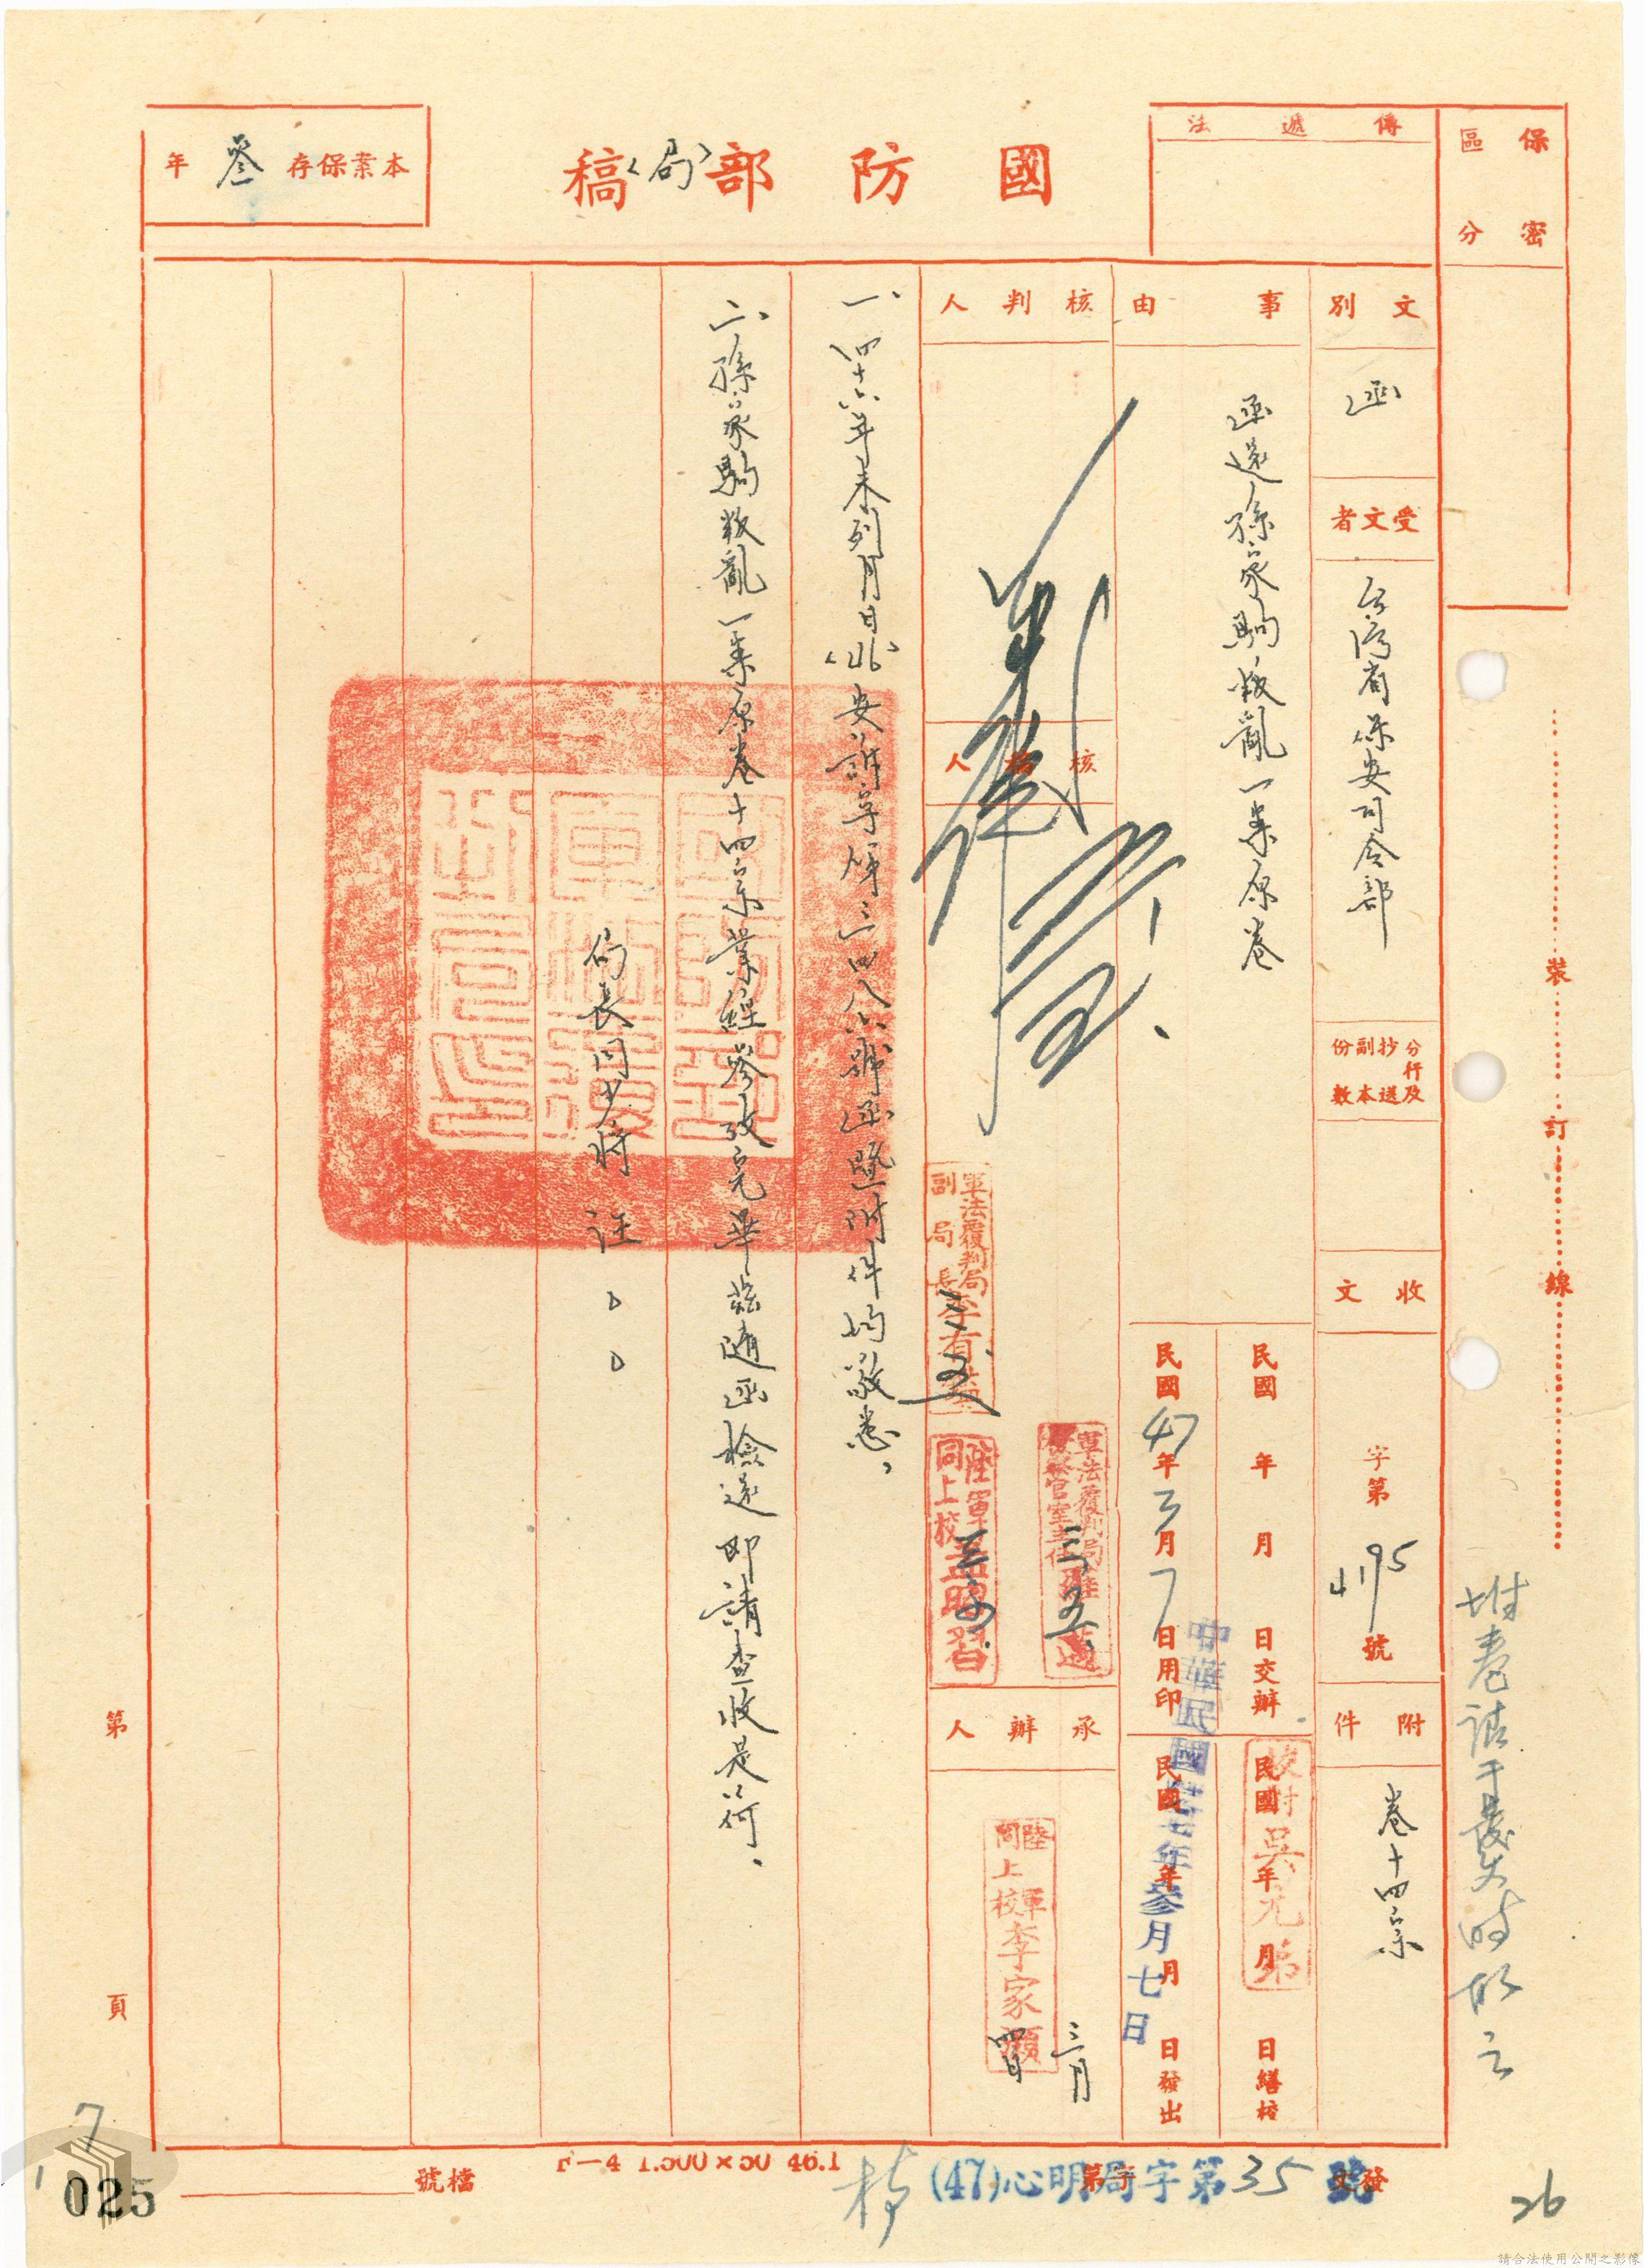 保密
區分
傳遞法
國防部〈局〉稿
本業保存 叄 年
文別
函
受文者
台灣省保安司令部
分行及抄送副本份數
收文
字第 4195 號
附件
卷十四宗
事由
函還孫家駒叛亂一案原卷
民國 年 月 日交辦
民國 47 年 3 月 7 日用印
民國 年 月 日繕校
民國 年 月 日發出
校對吳
中華民國 年叄月七日
核判人
核稿人
軍法覆判局副局長李有
三 五
軍法覆判局
三 五
陸軍同上校孟昭習
承辦人
陸軍同上校李家瀕
三月 四日
一、四十六年未列月日〈46〉安訴字第三四八六號函暨附件均敬悉。
二、孫家駒叛亂一案原卷十四宗業經參攷完畢茲隨函檢還即請查收是荷。
局長同少將 汪○○
國防部軍法覆判局之印
裝 訂 線
第 頁
檔號
F—4 1.500×50 46.1
發文 (47)心明局字第 35 號
7
1
025
26
請合法使用公開之影像